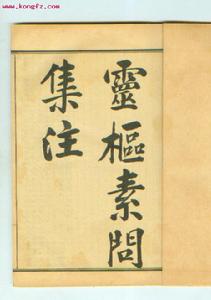 www.kongfz.com
靈樞素問
集注